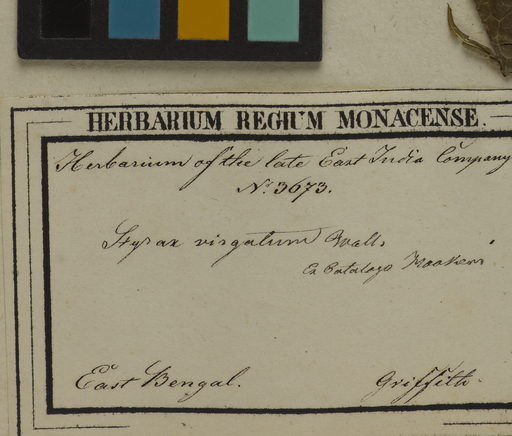 HERBARIUM REGIUM MONACENSE.
Herbarium of the late East India Company
No. 3673.
Styrax virgatum Wall.
Ex Catalogo Hookeri
East Bengal. Griffith.